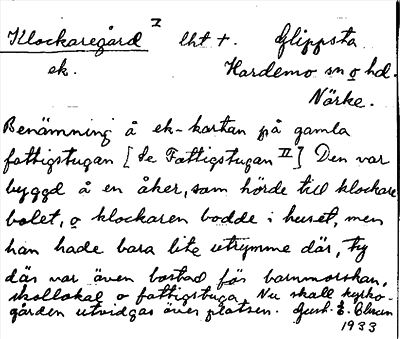 Klockaregård I lht +. Glippsta
ek. Hardemo sn o hd.
Närke.
Benämning å ek-kartan på gamla
fattigstugan [Se Fattigstugan II] Den var
byggd å en åker, som hörde till klockare
bolet, o klockaren bodde i huset, men
han hade bara lite utrymme där, ty
där var även bostad för barnmorskan,
skollokal o fattigstuga. Nu skall kyrko-
gården utvidgas över platsen. Gust. E.
1933